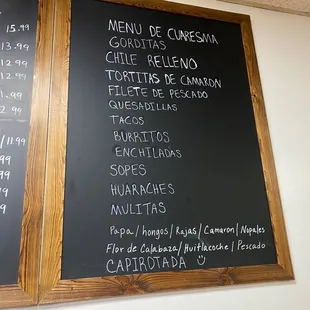 15.99
13.99
12.99
12.99
.99
2.99
/11.99
9.99
9.99
9.99
9.99
MENU DE CUARESMA
GORDITAS
CHILE RELLENO
TORTITAS DE CAMARON
FILETE DE PESCADO
QUESADILLAS
TACOS
BURRITOS
ENCHILADAS
SOPES
HUARACHES
MULITAS
Papa/hongos/Rajas/Camaron/Nopales
Flor de Calabaza/Huitlacoche/Pescado
CAPIROTADA